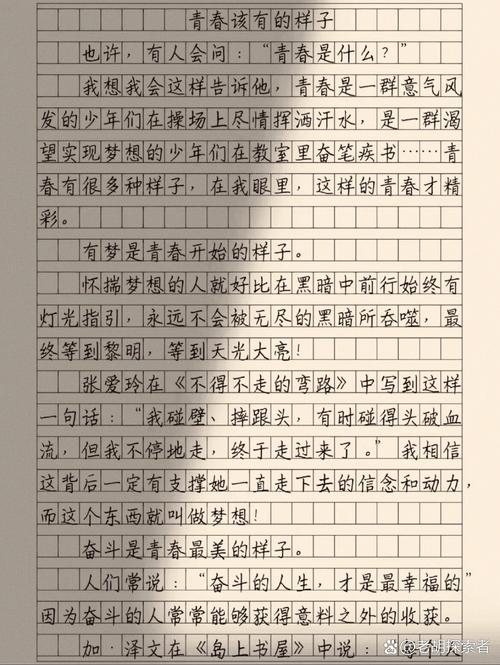 青春该有的样子
也许，有人会问：“青春是什么？”
我想我会这样告诉他，青春是一群意气风
发的少年们在操场上尽情挥洒汗水，是一群渴
望实现梦想的少年们在教室里奋笔疾书……青
春有很多种样子，在我眼里，这样的青春才精
彩。
有梦是青春开始的样子。
怀揣梦想的人就好比在黑暗中前行始终有
灯光指引，永远不会被无尽的黑暗所吞噬，最
终等到黎明，等到天光大亮！
张爱玲在《不得不走的弯路》中写到这样
一句话：“我碰壁、摔跟头，有时碰得头破血
流，但我不停地走，终于走过来了。”我相信
这背后一定有支撑她一直走下去的信念和动力，
而这个东西就叫做梦想！
奋斗是青春最美的样子。
人们常说：“奋斗的人生，才是最幸福的”
因为奋斗的人常常能够获得意料之外的收获。
加·泽文在《岛上书屋》中说：“每个人
@老胡探索者